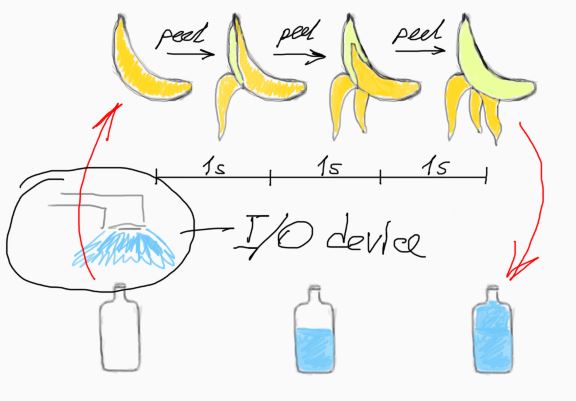 peel peel peel
1s 1s 1s
I/O device